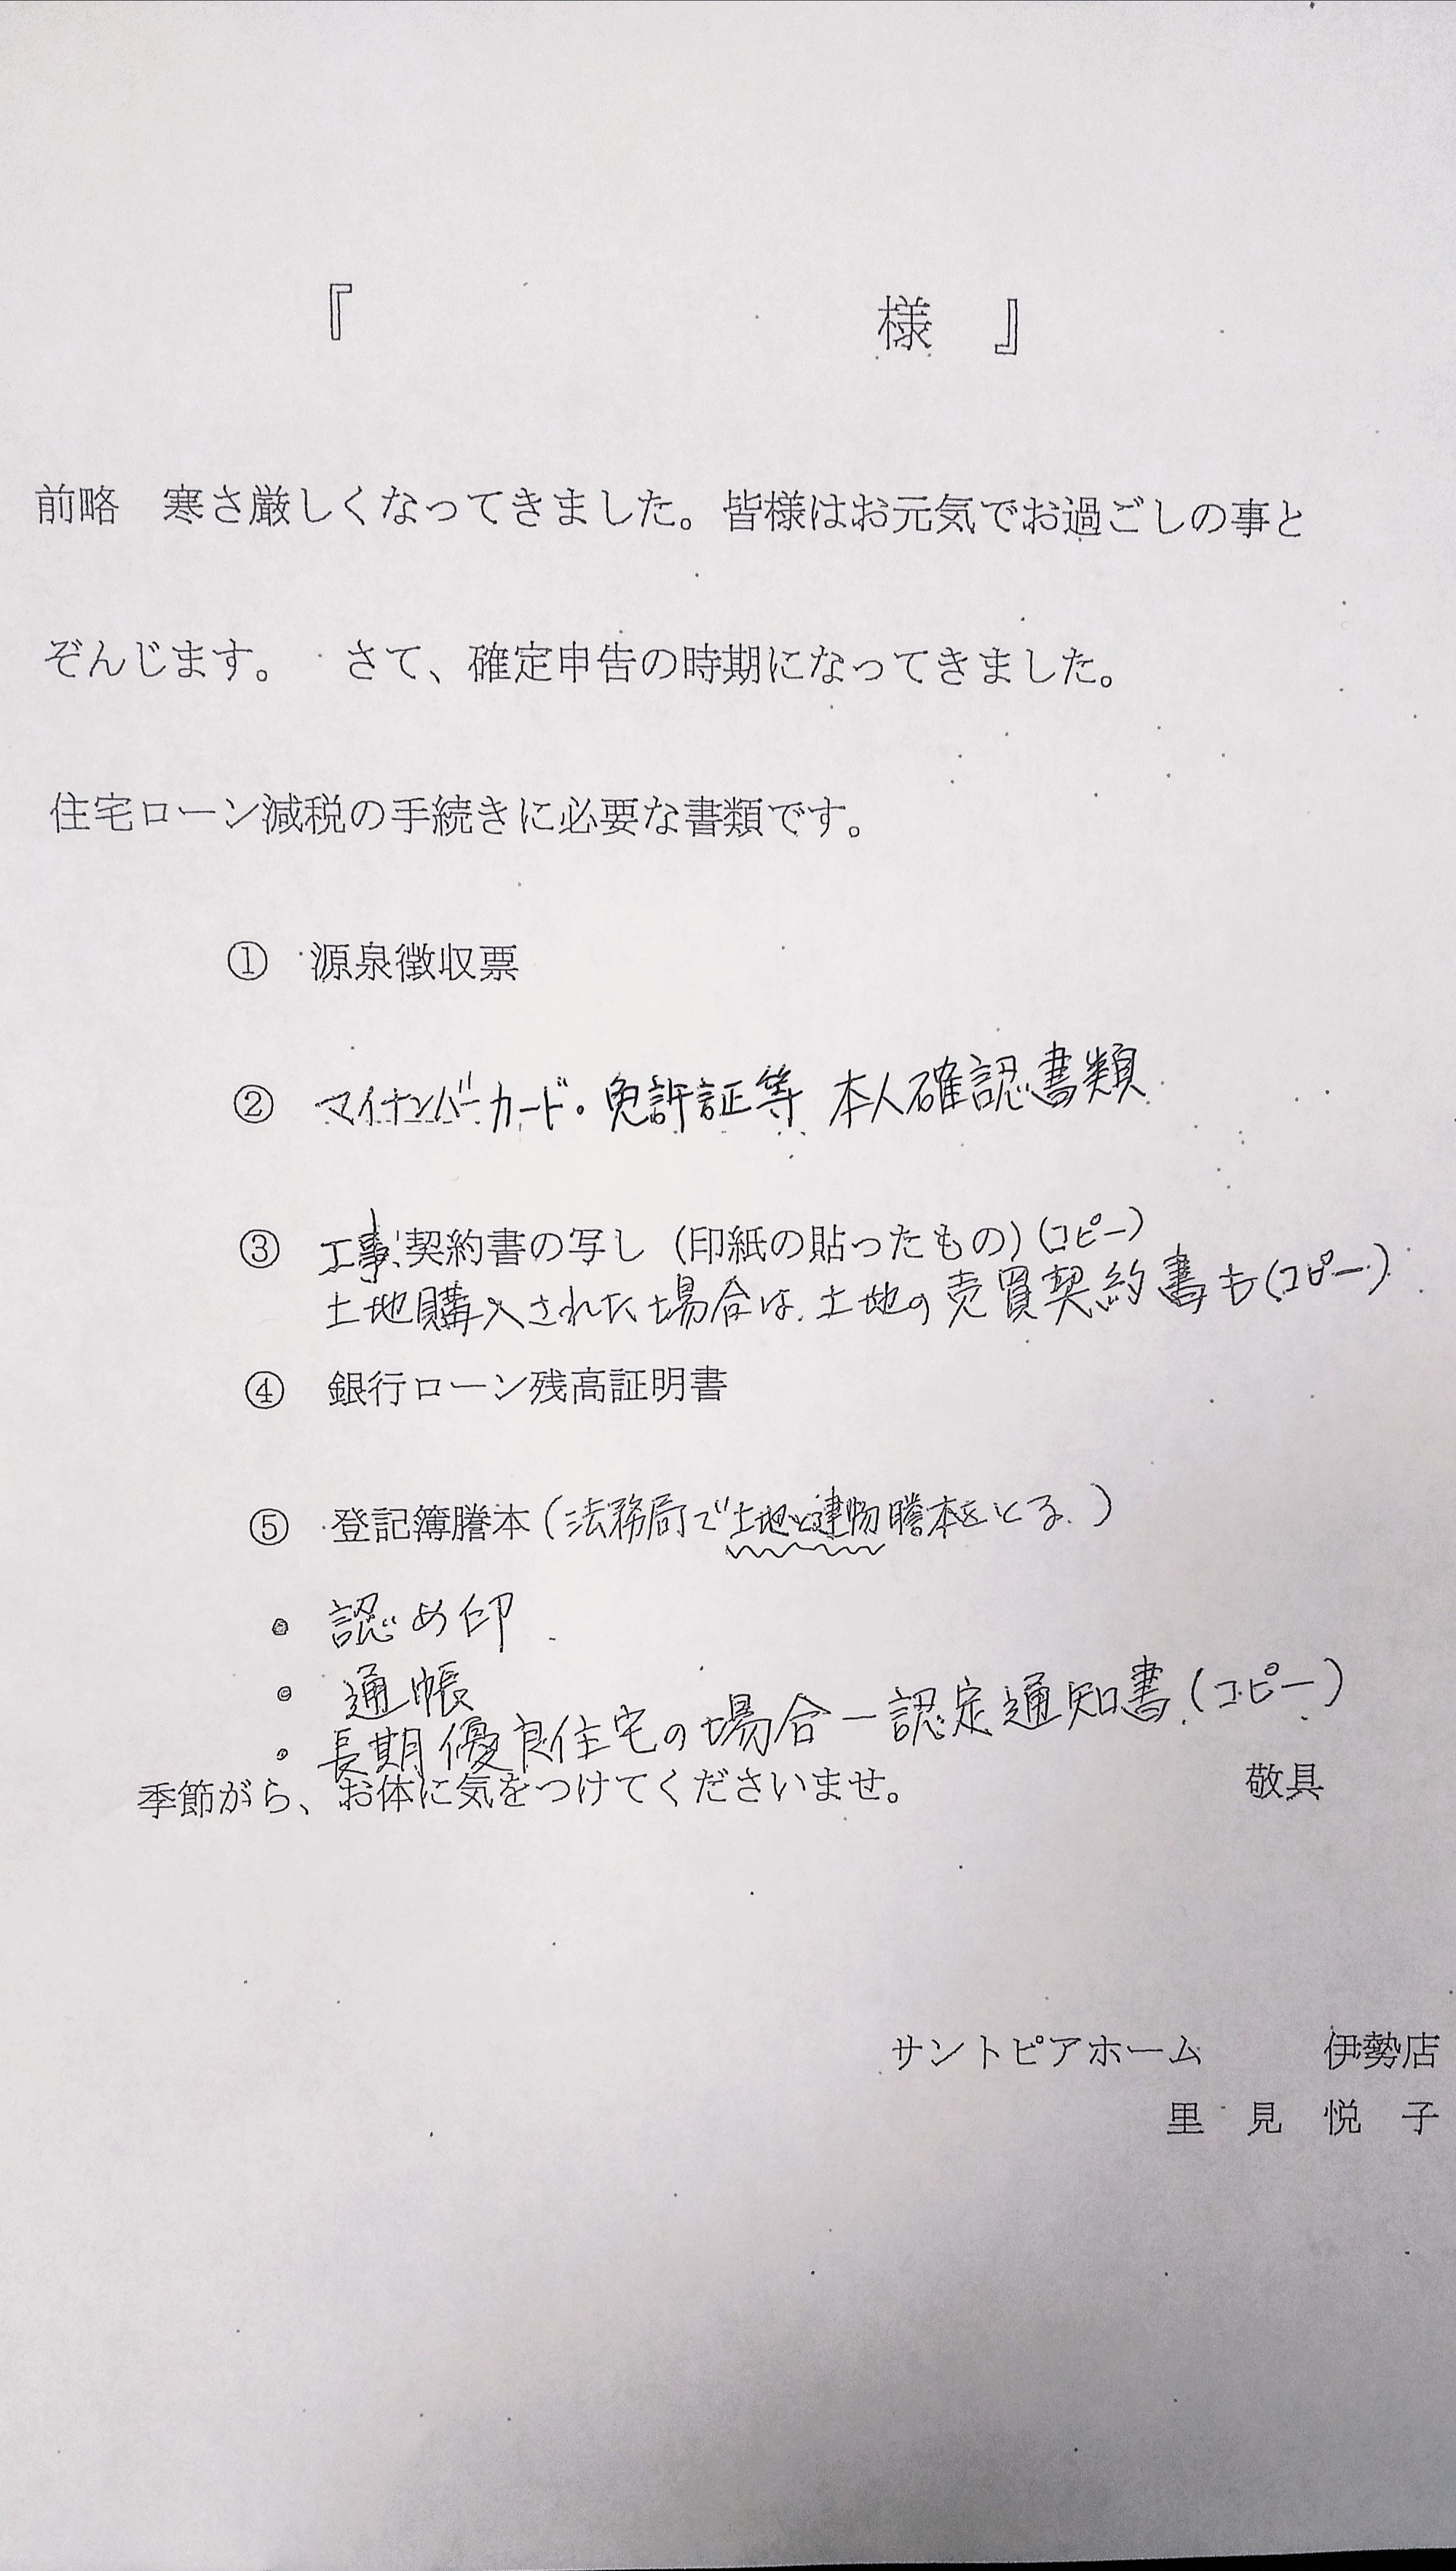 『　　　　　　　　　　　様　』
前略　寒さ厳しくなってきました。皆様はお元気でお過ごしの事と
ぞんじます。　さて、確定申告の時期になってきました。
住宅ローン減税の手続きに必要な書類です。
①　源泉徴収票
②　マイナンバーカード・免許証等　本人確認書類
③　工事契約書の写し（印紙の貼ったもの）（コピー）
土地購入された場合は、土地の売買契約書も（コピー）
④　銀行ローン残高証明書
⑤　登記簿謄本（法務局で土地と建物謄本をとる。）
・認め印
・通帳
・長期優良住宅の場合ー認定通知書（コピー）
季節がら、お体に気をつけてくださいませ。　　　　敬具
サントピアホーム　　　伊勢店
里　見　悦　子